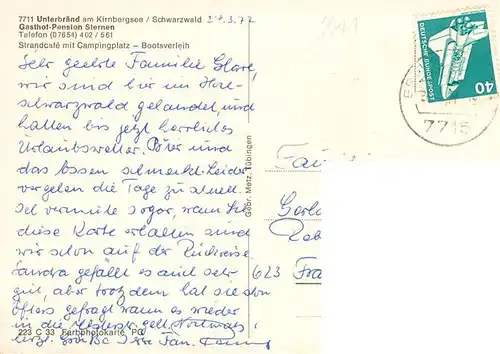 7711 Unterbränd am Kirnbergsee / Schwarzwald 24.3.77
Gasthof-Pension Sternen
Telefon (07654) 402 / 561
Strandcafé mit Campingplatz – Bootsverleih
Sehr geehrte Familie
wir sind hier im Hoch-
schwarzwald gelandet und
hatten bis jetzt herrliches
Urlaubswetter. Bier und
das Essen schmeckt. Leider
vergehen die Tage zu schnell.
Ich vermute sogar, wenn Sie
diese Karte erhalten sind
wir schon auf der Rückreise.
Sandra gefällt es auch sehr
gut, aber trotzdem hat sie schon
öfters gefragt wann es wieder
in die geht. Nochmals
herzl. Grüße Ihre Fam.
223 C 33 Farbphotokarte
Gebr. Metz, Tübingen
DEUTSCHE BUNDESPOST
40
7715
623